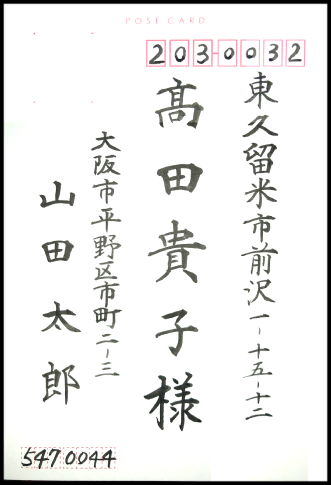 POST CARD
203-0032
東久留米市前沢一-十五-十二
髙田貴子様
大阪市平野区市町二-三
山田太郎
5470044